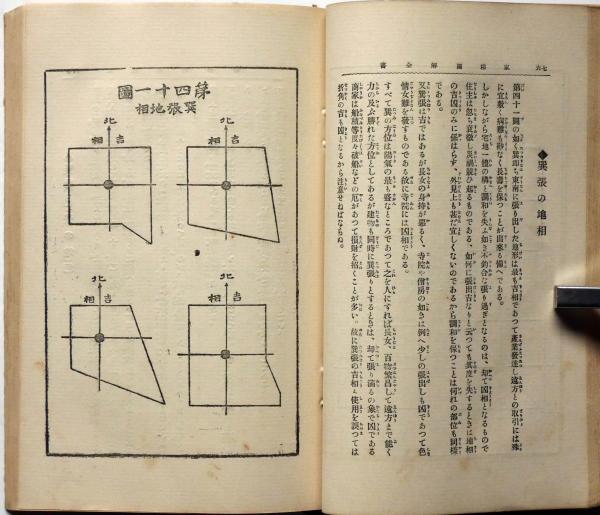 七六
家相圖解全書
巽張の地相
第四十一圖の如く巽即ち東南に張り出した地形は最も吉相であつて產業發達し遠方との取引には殊
に宜敷く病難も尠なく長壽を保つことが出來る備へである。
しかしながら宅地一體の構と調和を失ふ如き不釣合な張り過ぎとなるのは、却て凶相となるもので
住主は忽ち衰微し災禍競ひ起るものである、如何に張出吉なりと云つても其度を失するときは地相
の吉凶のみに係はらず、外見上も甚だ宜しくないのであるから調和を保つことは何れの部位も同樣
である。
又巽張は吉ではあるが長女の身持が惡るく、寺院や僧房の如きは例へ少しの張出しも凶であつて色
情女難を發すものである故に寺院には凶相である。
すべて巽の方位は陽氣の最も盛なところであつて之を人にすれば長女、百物繁昌して遠方まで能く
力の及ぶ勝れた方位としてあるが建物も同時に巽張りとするときは、却て張り満るの象で凶である
商家は船積等度々破船などの厄があつて損財を招くことが多い。故に巽張の吉相も使用を誤つては
折角の吉も凶となるから注意せねばならぬ。
第四十一圖
巽張地相
北
吉相
北
吉相
北
吉相
北
吉相